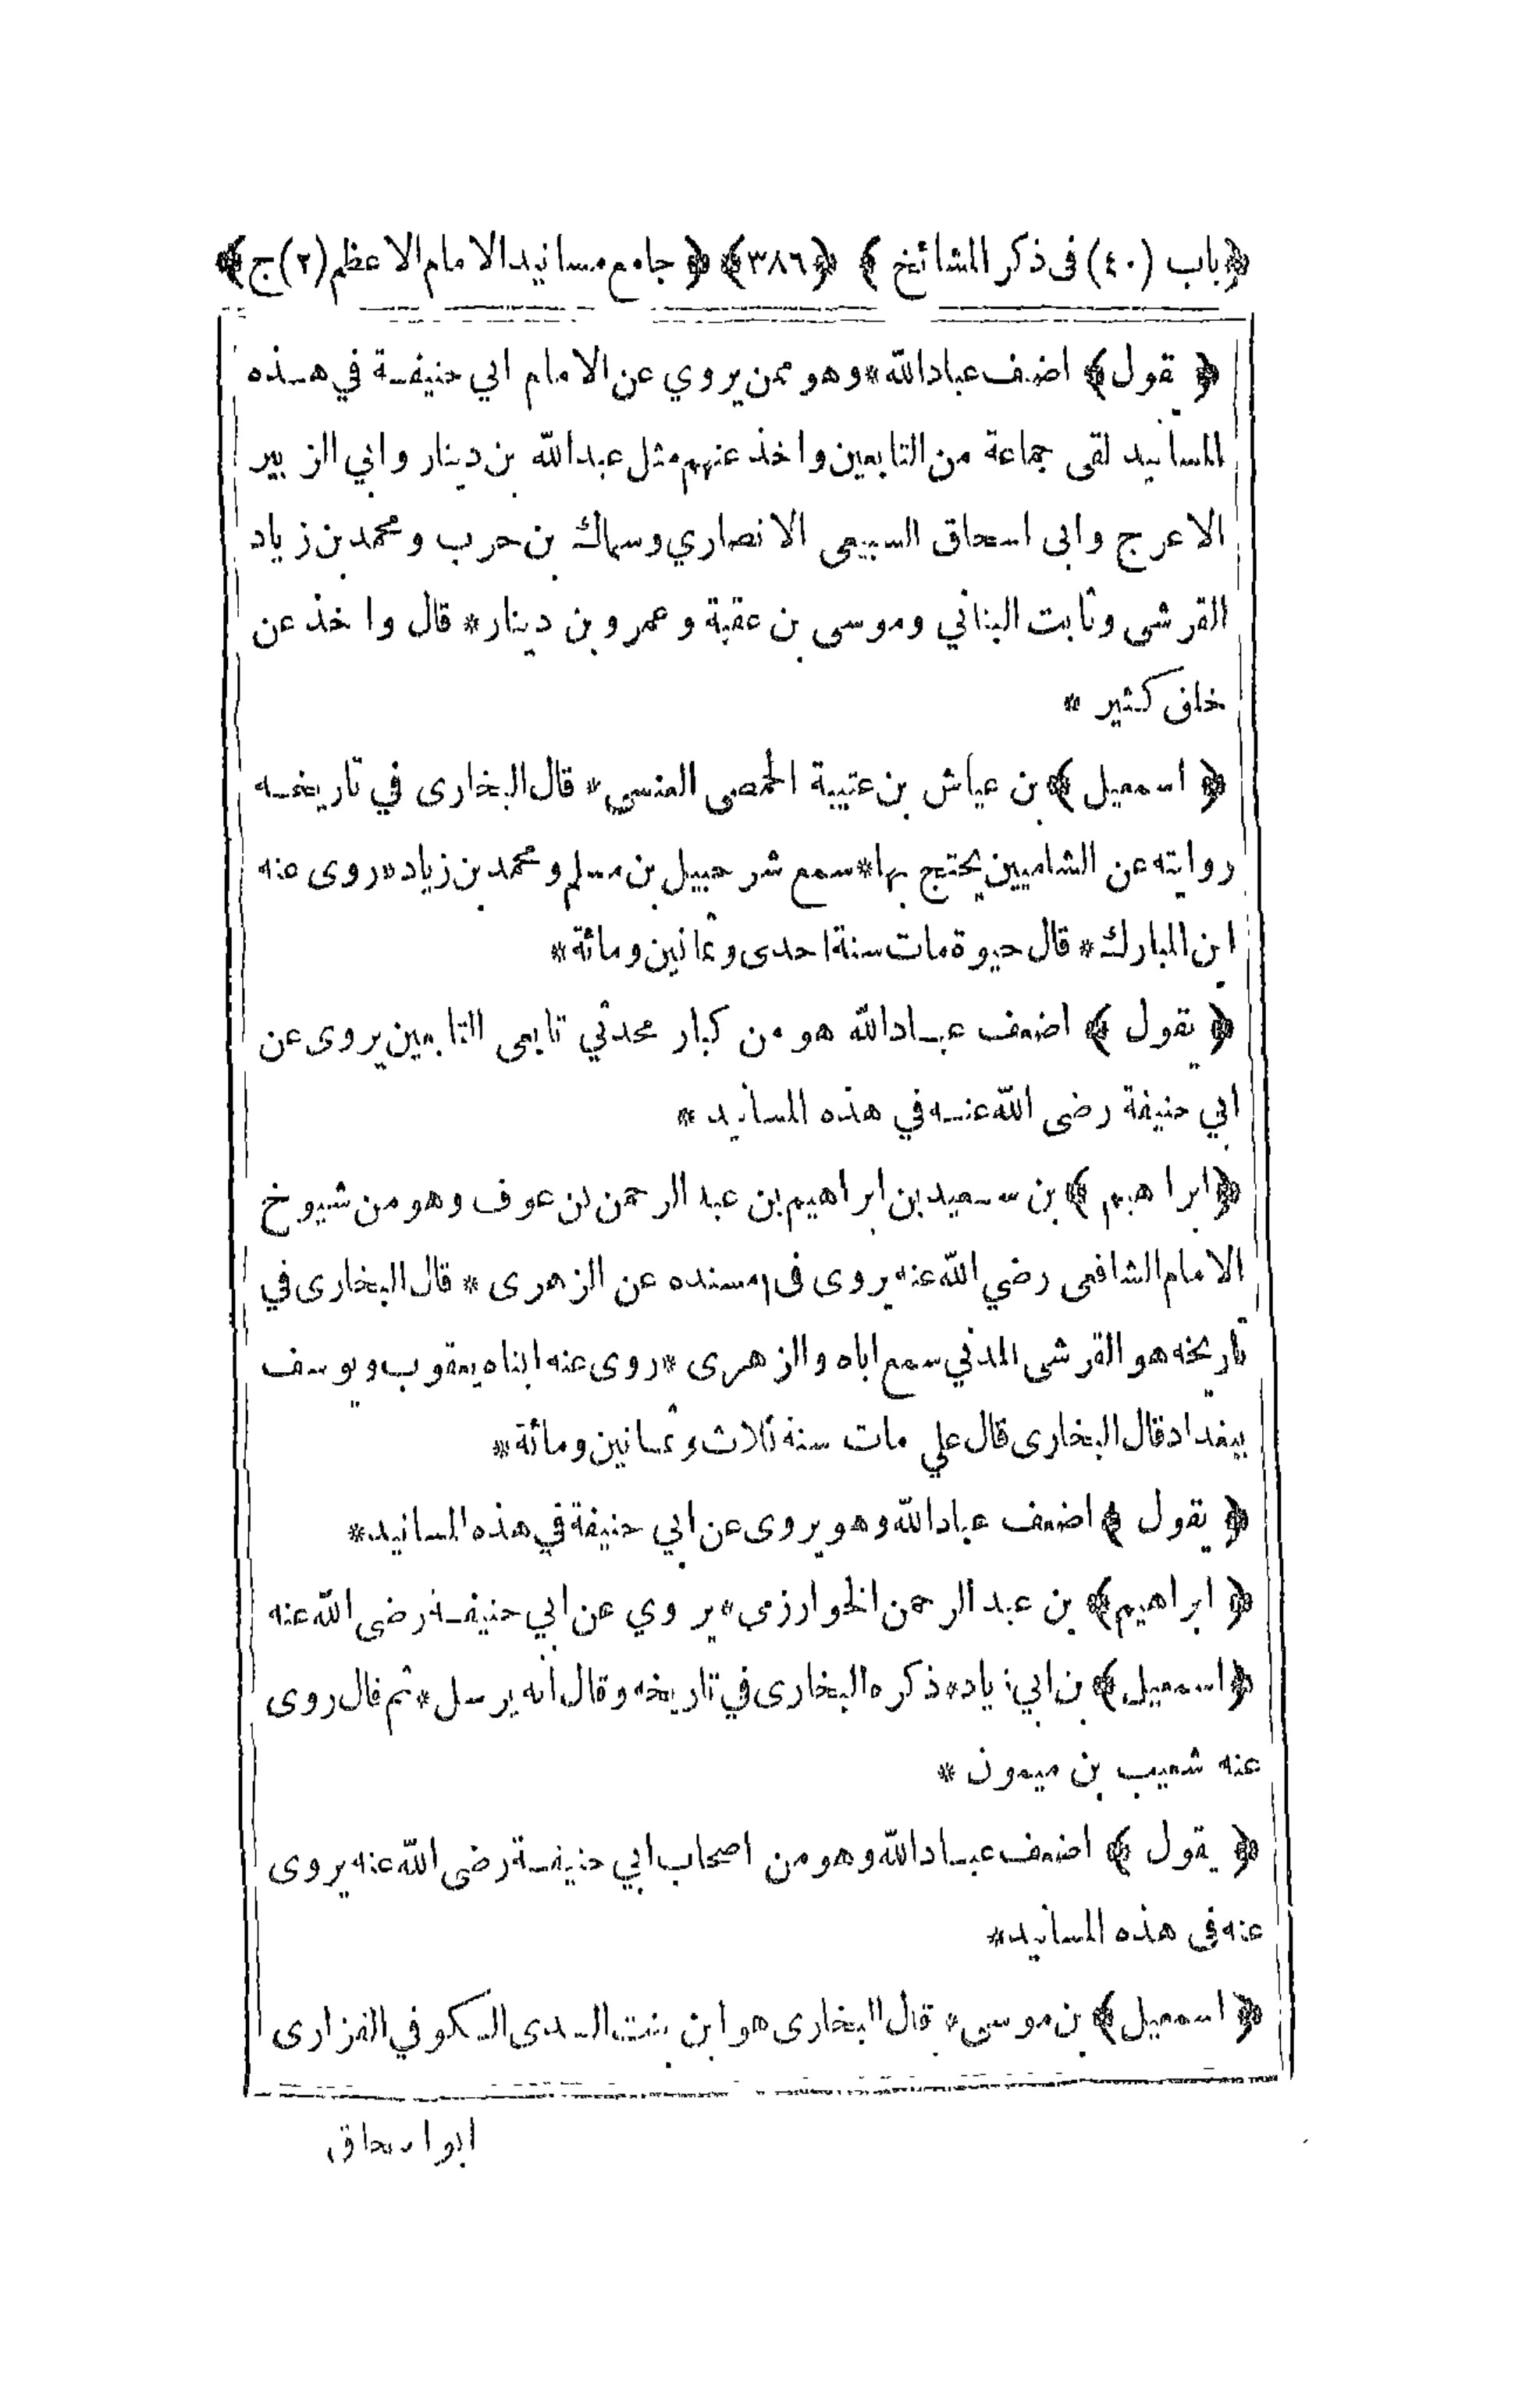 ﴿باب (٤٠) فى ذكر المشائخ﴾ ﴿٣٨٦﴾ ﴿جامع مسانيد الامام الاعظم (٢) ج﴾
﴿يقول﴾ اضعف عباد الله * وهو ممن يروي عن الامام ابي حنيفة في هذه
المسانيد لقى جماعة من التابعين واخذ عنهم مثل عبد الله بن دينار وابي الزبير
الاعرج وابى اسحاق السبيعى الانصاري وسماك بن حرب ومحمد بن زياد
القرشى وثابت البناني وموسى بن عقبة وعمرو بن دينار * قال واخذ عن
خلق كثير *
﴿اسمعيل﴾ بن عياش بن عتيبة الحمصى العنسي * قال البخارى في تاريخه
روايته عن الشاميين يحتج بها * سمع شرحبيل بن مسلم ومحمد بن زياد * روى عنه
ابن المبارك * قال حيوة مات سنة احدى وثمانين ومائة *
﴿يقول﴾ اضعف عباد الله هو من كبار محدثي تابعى التابعين يروى عن
ابي حنيفة رضى الله عنه في هذه المسانيد *
﴿ابراهيم﴾ بن سعيد بن ابراهيم بن عبد الرحمن بن عوف وهو من شيوخ
الامام الشافعى رضي الله عنه يروى فى مسنده عن الزهرى * قال البخارى في
تاريخه هو القرشى المدني سمع اباه والزهرى * روى عنه ابناه يعقوب ويوسف
ببغداد قال البخارى قال علي مات سنة ثلاث وثمانين ومائة *
﴿يقول﴾ اضعف عباد الله وهو يروى عن ابي حنيفة في هذه المسانيد *
﴿ابراهيم﴾ بن عبد الرحمن الخوارزمى * يروي عن ابي حنيفة رضى الله عنه
﴿اسمعيل﴾ بن ابي زياد * ذكره البخارى في تاريخه وقال انه يرسل * ثم قال روى
عنه شعيب بن ميمون *
﴿يقول﴾ اضعف عباد الله وهو من اصحاب ابي حنيفة رضى الله عنه يروى
عنه فى هذه المسانيد *
﴿اسمعيل﴾ بن موسى * قال البخارى هو ابن بنت السدى السكوفي الفزارى
ابو اسحاق